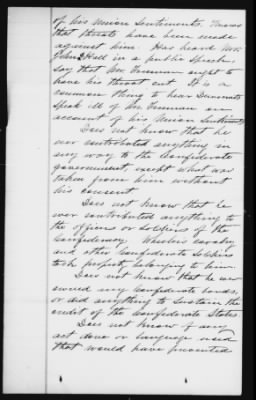 of his Union Sentiments. Knows
that threats have been made
against him. Has heard Mr.
John Hall in a public Speech
say that Mr. Freeman ought to
have his throat cut. It is a
common thing to hear Democrats
Speak ill of Mr. Freeman on
account of his Union Sentiments
Does not know that he
ever contributed anything in
any way to the Confederate
government, except what was
taken from him without
his consent
Does not know that he
ever contributed anything to
the officers or soldiers of the
Confederacy. cavalry
and other Confederate Soldiers
took property belonging to him.
Does not know that he ever
owned any Confederate bonds,
or did anything to sustain the
credit of the Confederate States
Does not know of any
act done or language used
that would have prevented